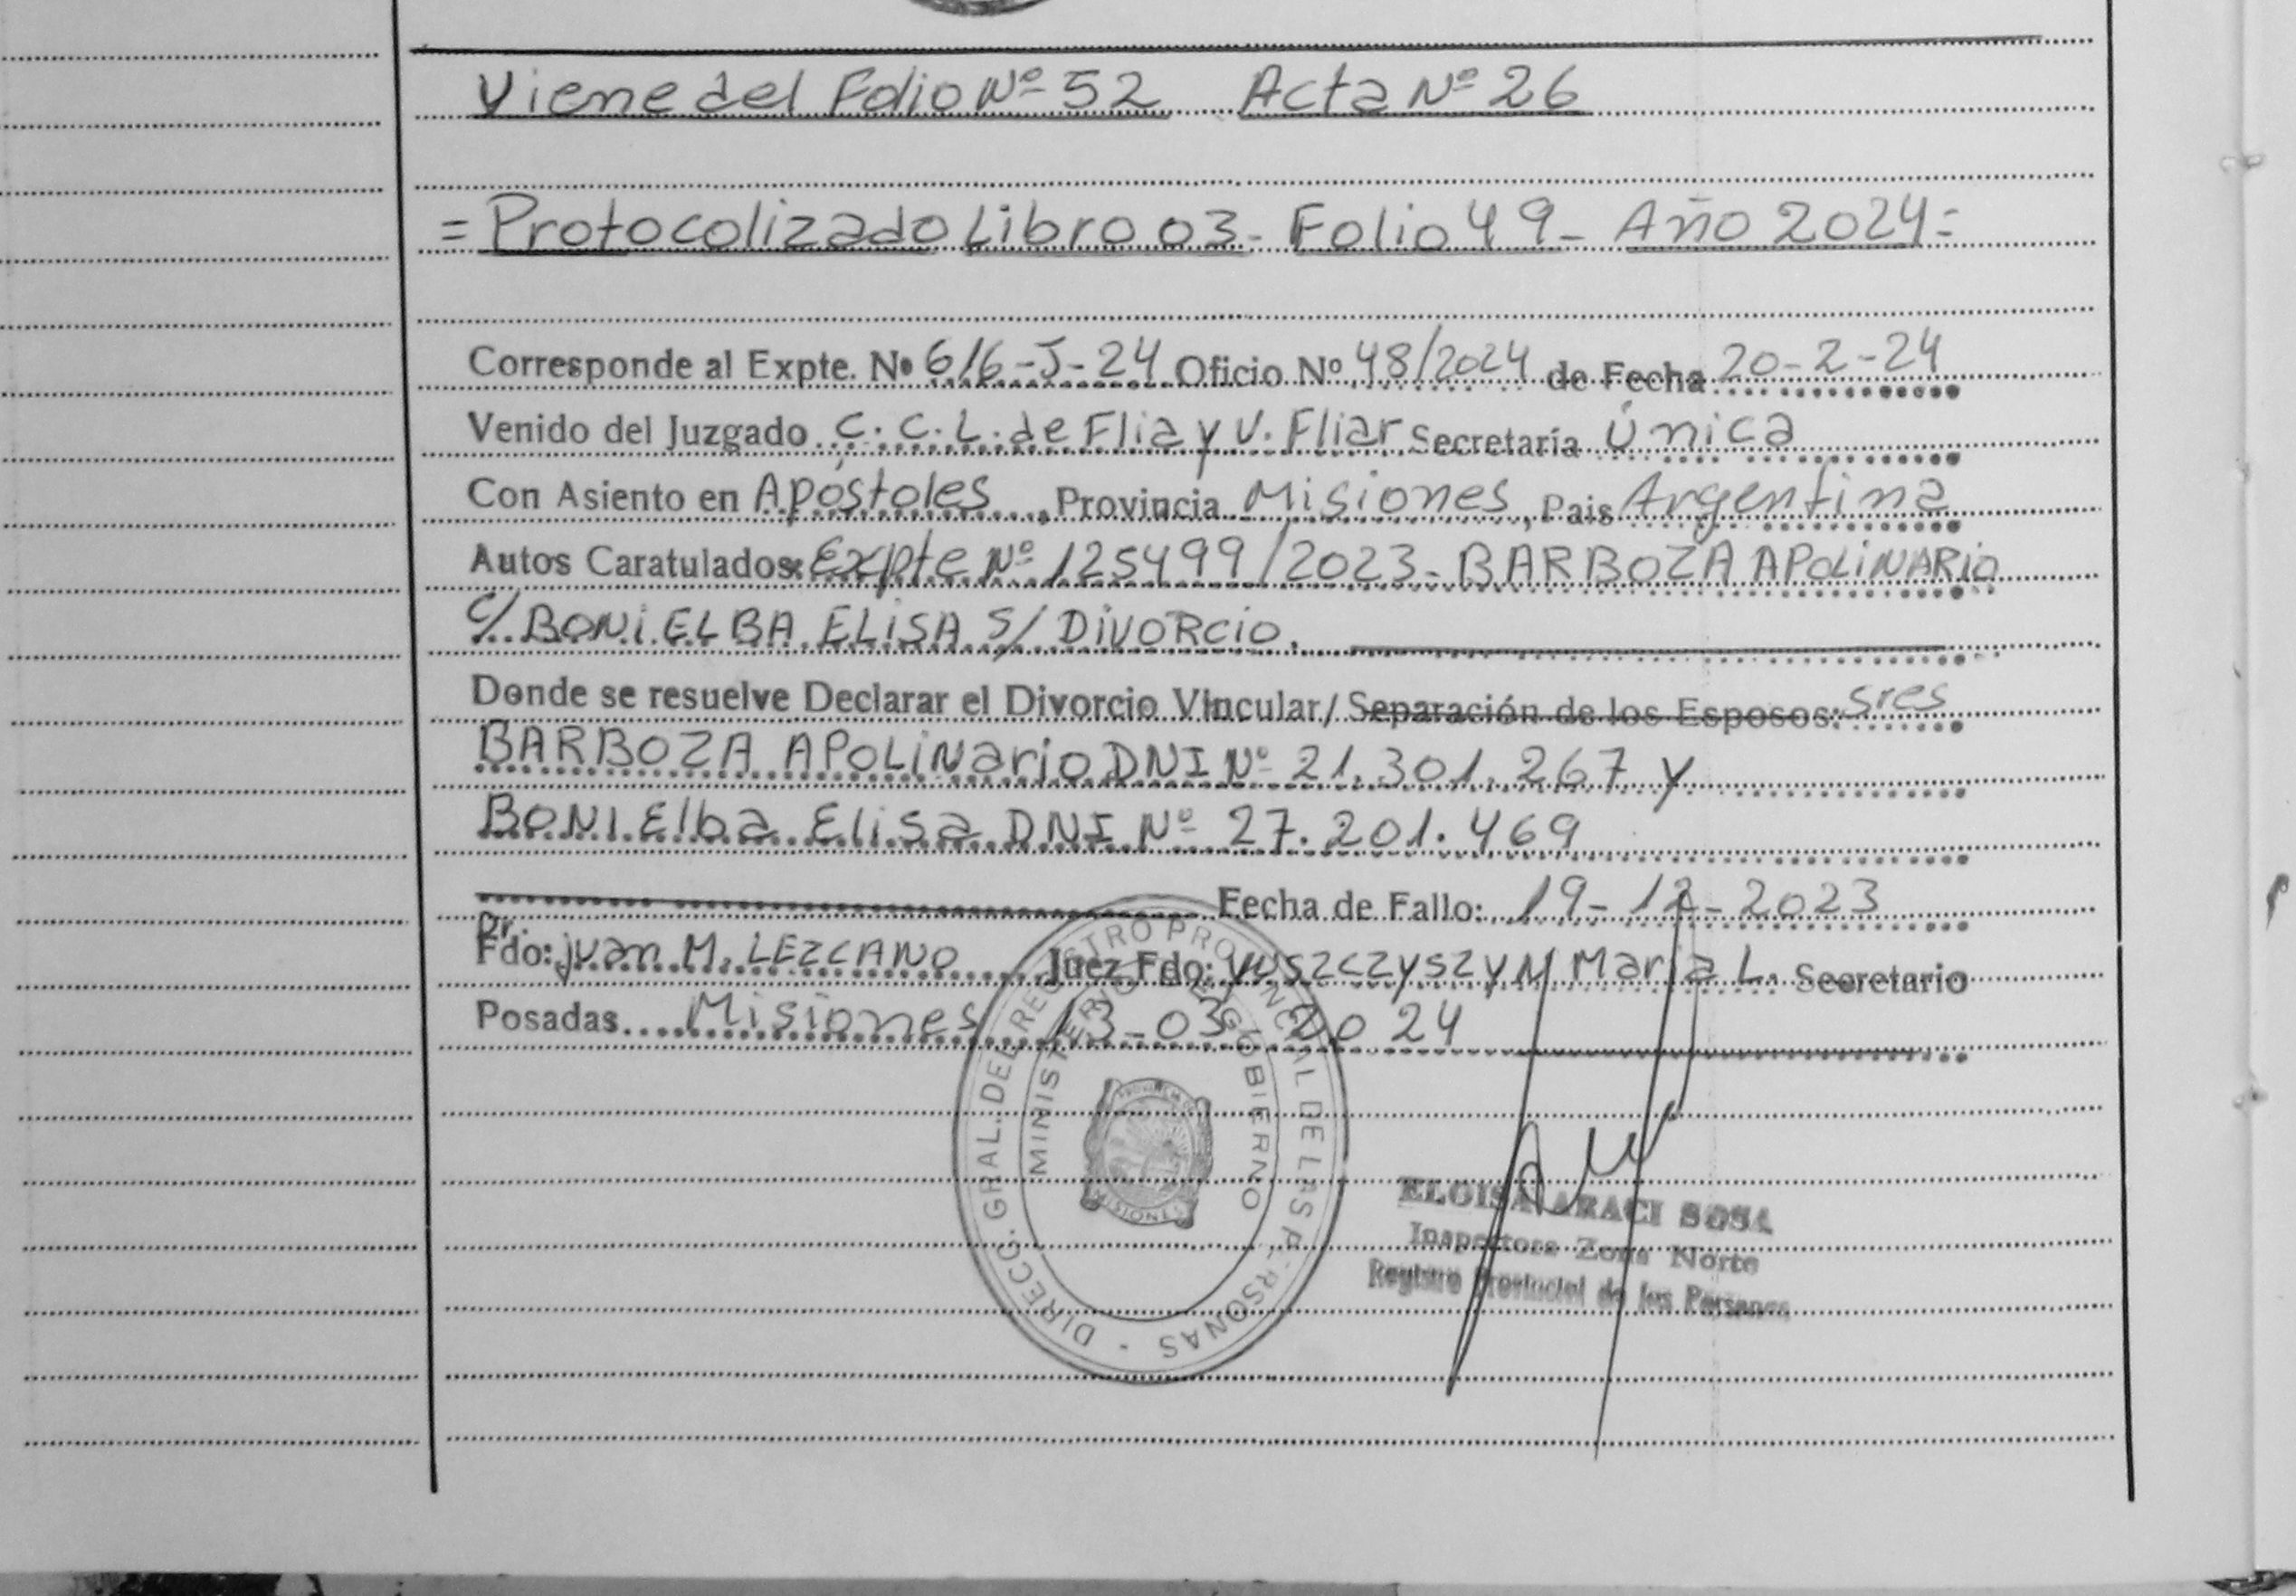 Viene del Folio Nº 52 Acta Nº 26
= Protocolizado Libro 03 - Folio 49 - Año 2024 =
Corresponde al Expte. Nº 616-J-24 Oficio Nº 48/2024 de Fecha 20-2-24
Venido del Juzgado C. C. L. de Flia y V. Fliar Secretaría Única
Con Asiento en Apóstoles, Provincia Misiones, Pais Argentina
Autos Caratulados: Expte Nº 125499/2023 - BARBOZA APOLINARIO
C/ BONI ELBA ELISA S/ DIVORCIO.
Donde se resuelve Declarar el Divorcio Vincular/ Separación de los Esposos: Sres
BARBOZA APOLINario DNI Nº 21.301.267 y
BONI Elba Elisa DNI Nº 27.201.469
Fecha de Fallo: 19-12-2023
Dr.
Fdo: Juan M. LEZCANO Juez Fdo: YUSZCZYSZYN Maria L. Secretario
Posadas Misiones 13-03-2024
DIRECC. GRAL. DEL REGISTRO PROVINCIAL DE LAS PERSONAS -
MINISTERIO DE GOBIERNO
PROVINCIA DE
MISIONES
ELOISA ARACI SOSA
Inspectora Zona Norte
Registro Provincial de las Personas